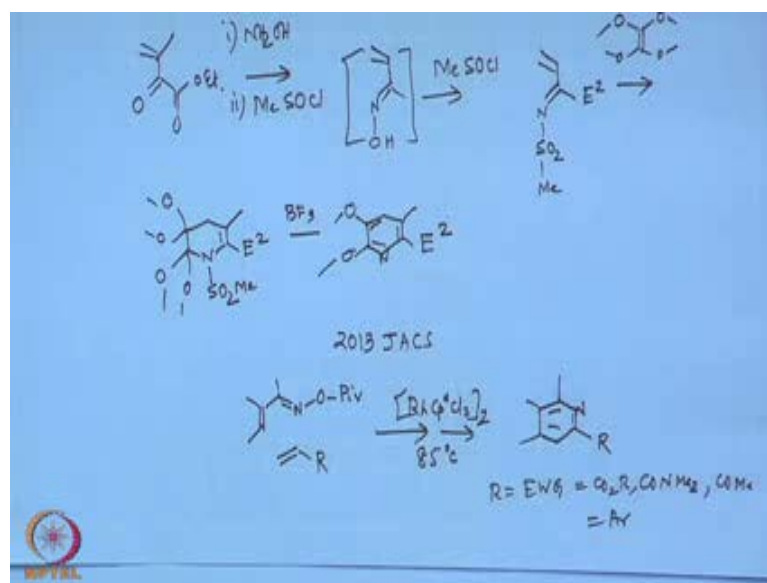 i) NH2OH
ii) MeSOCl
O
OEt
O
N
OH
MeSOCl
N
E2
SO2
Me
O
O
O
O
N
E2
SO2Me
BF3
O
O
N
E2
2013 JACS
N-O-Piv
R
[RhCp*Cl2]2
85°C
N
R
R = EWG = CO2R, CONMe2, COMe
= Ar
NPTEL